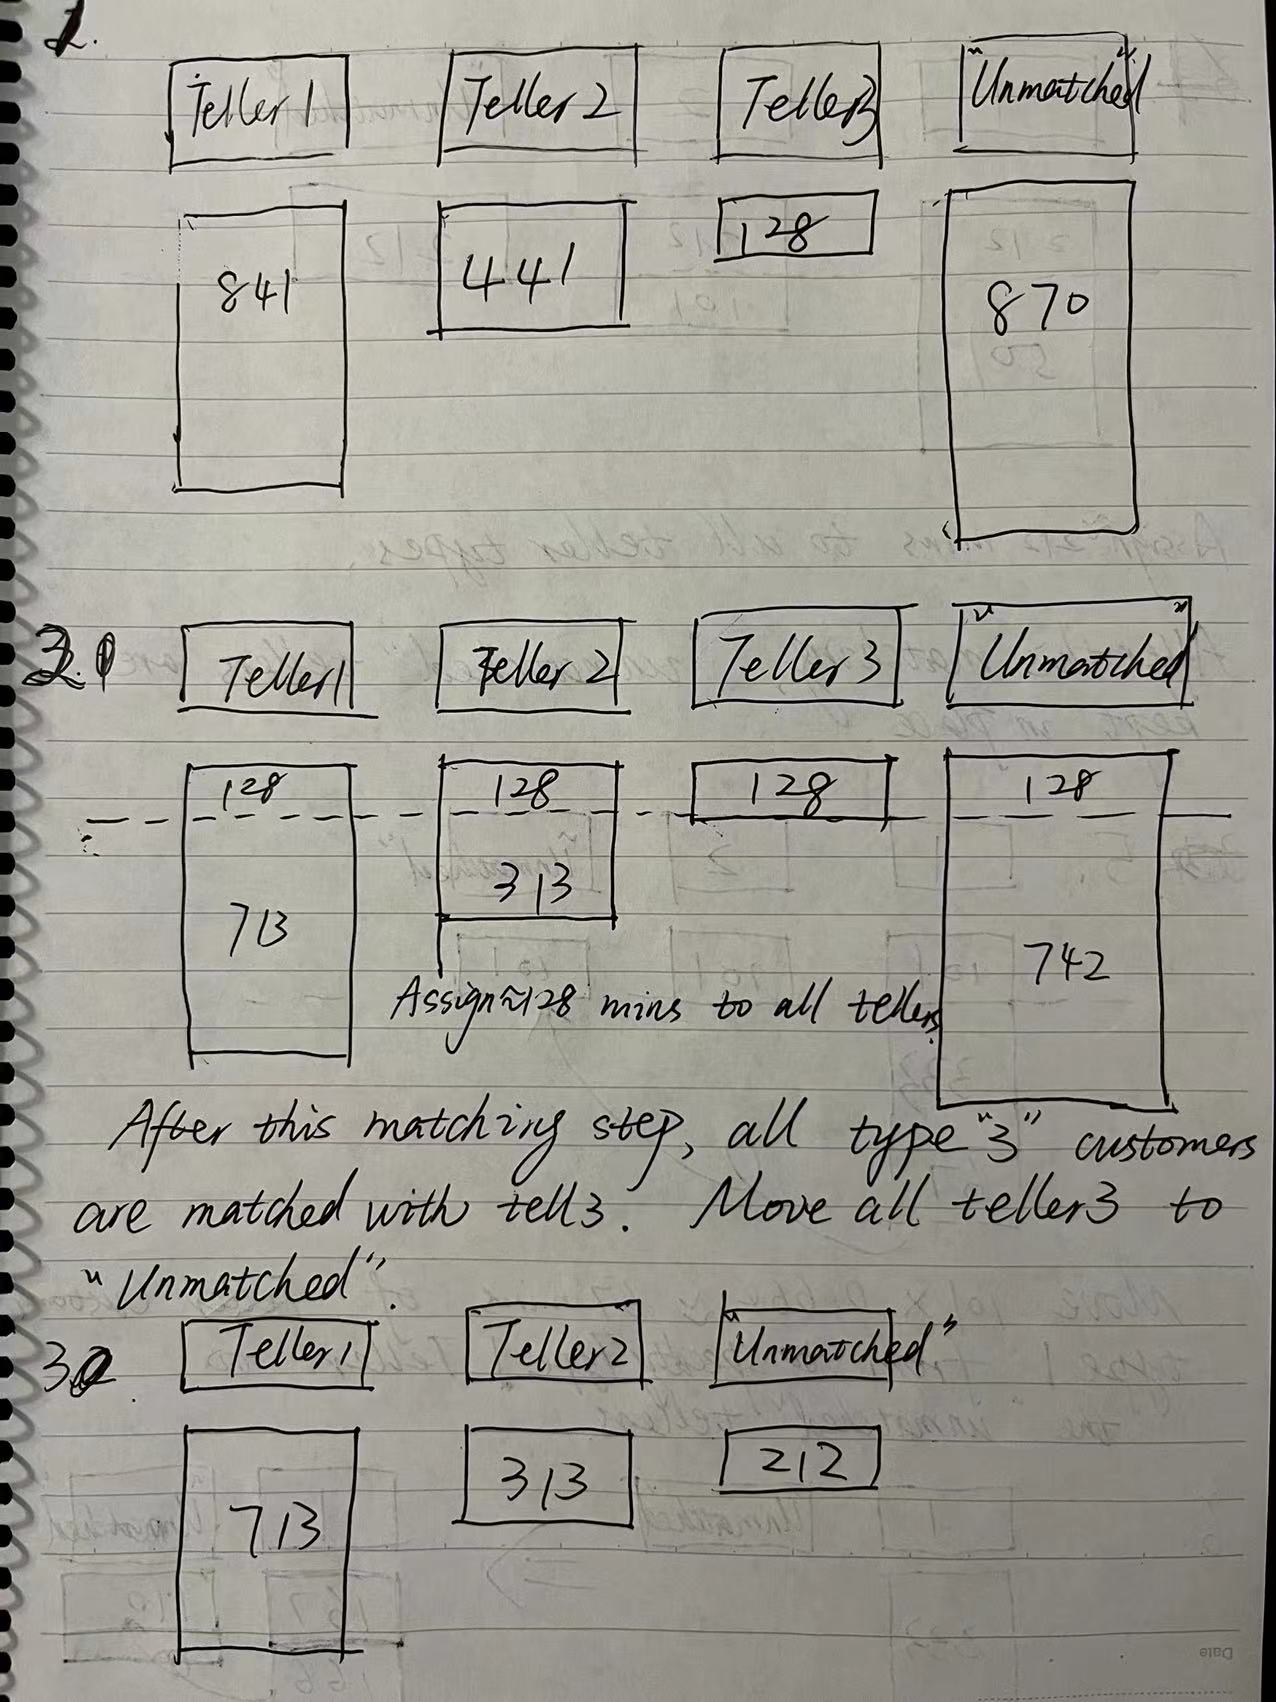 1.
Teller 1 Teller 2 Teller3 "Unmatched"
841 441 128 870
Teller1 Teller 2 Teller 3 "Unmatched"
128 128 128 128
713 313 742
Assign≈128 mins to all tellers.
After this matching step, all type "3" customers
are matched with tell3. Move all teller3 to
"Unmatched".
Teller1 Teller2 "Unmatched"
713 313 212